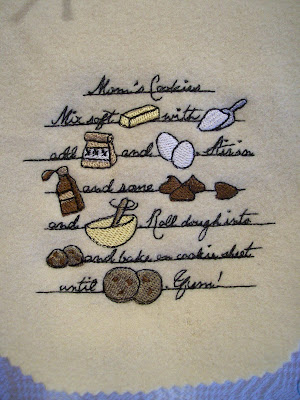 Mom's Cookies
Mix soft with
add and Stir in
and some
and Roll dough into
and bake on cookie sheet
until . Yum!